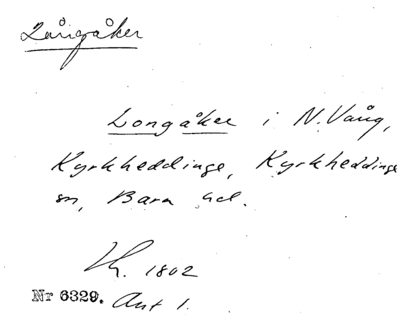 Långåker
Longåker i N. Vång,
Kyrkheddinge, Kyrkheddinge
sn, Bara hd.
Lh. 1802
Nr 6329. Akt 1.